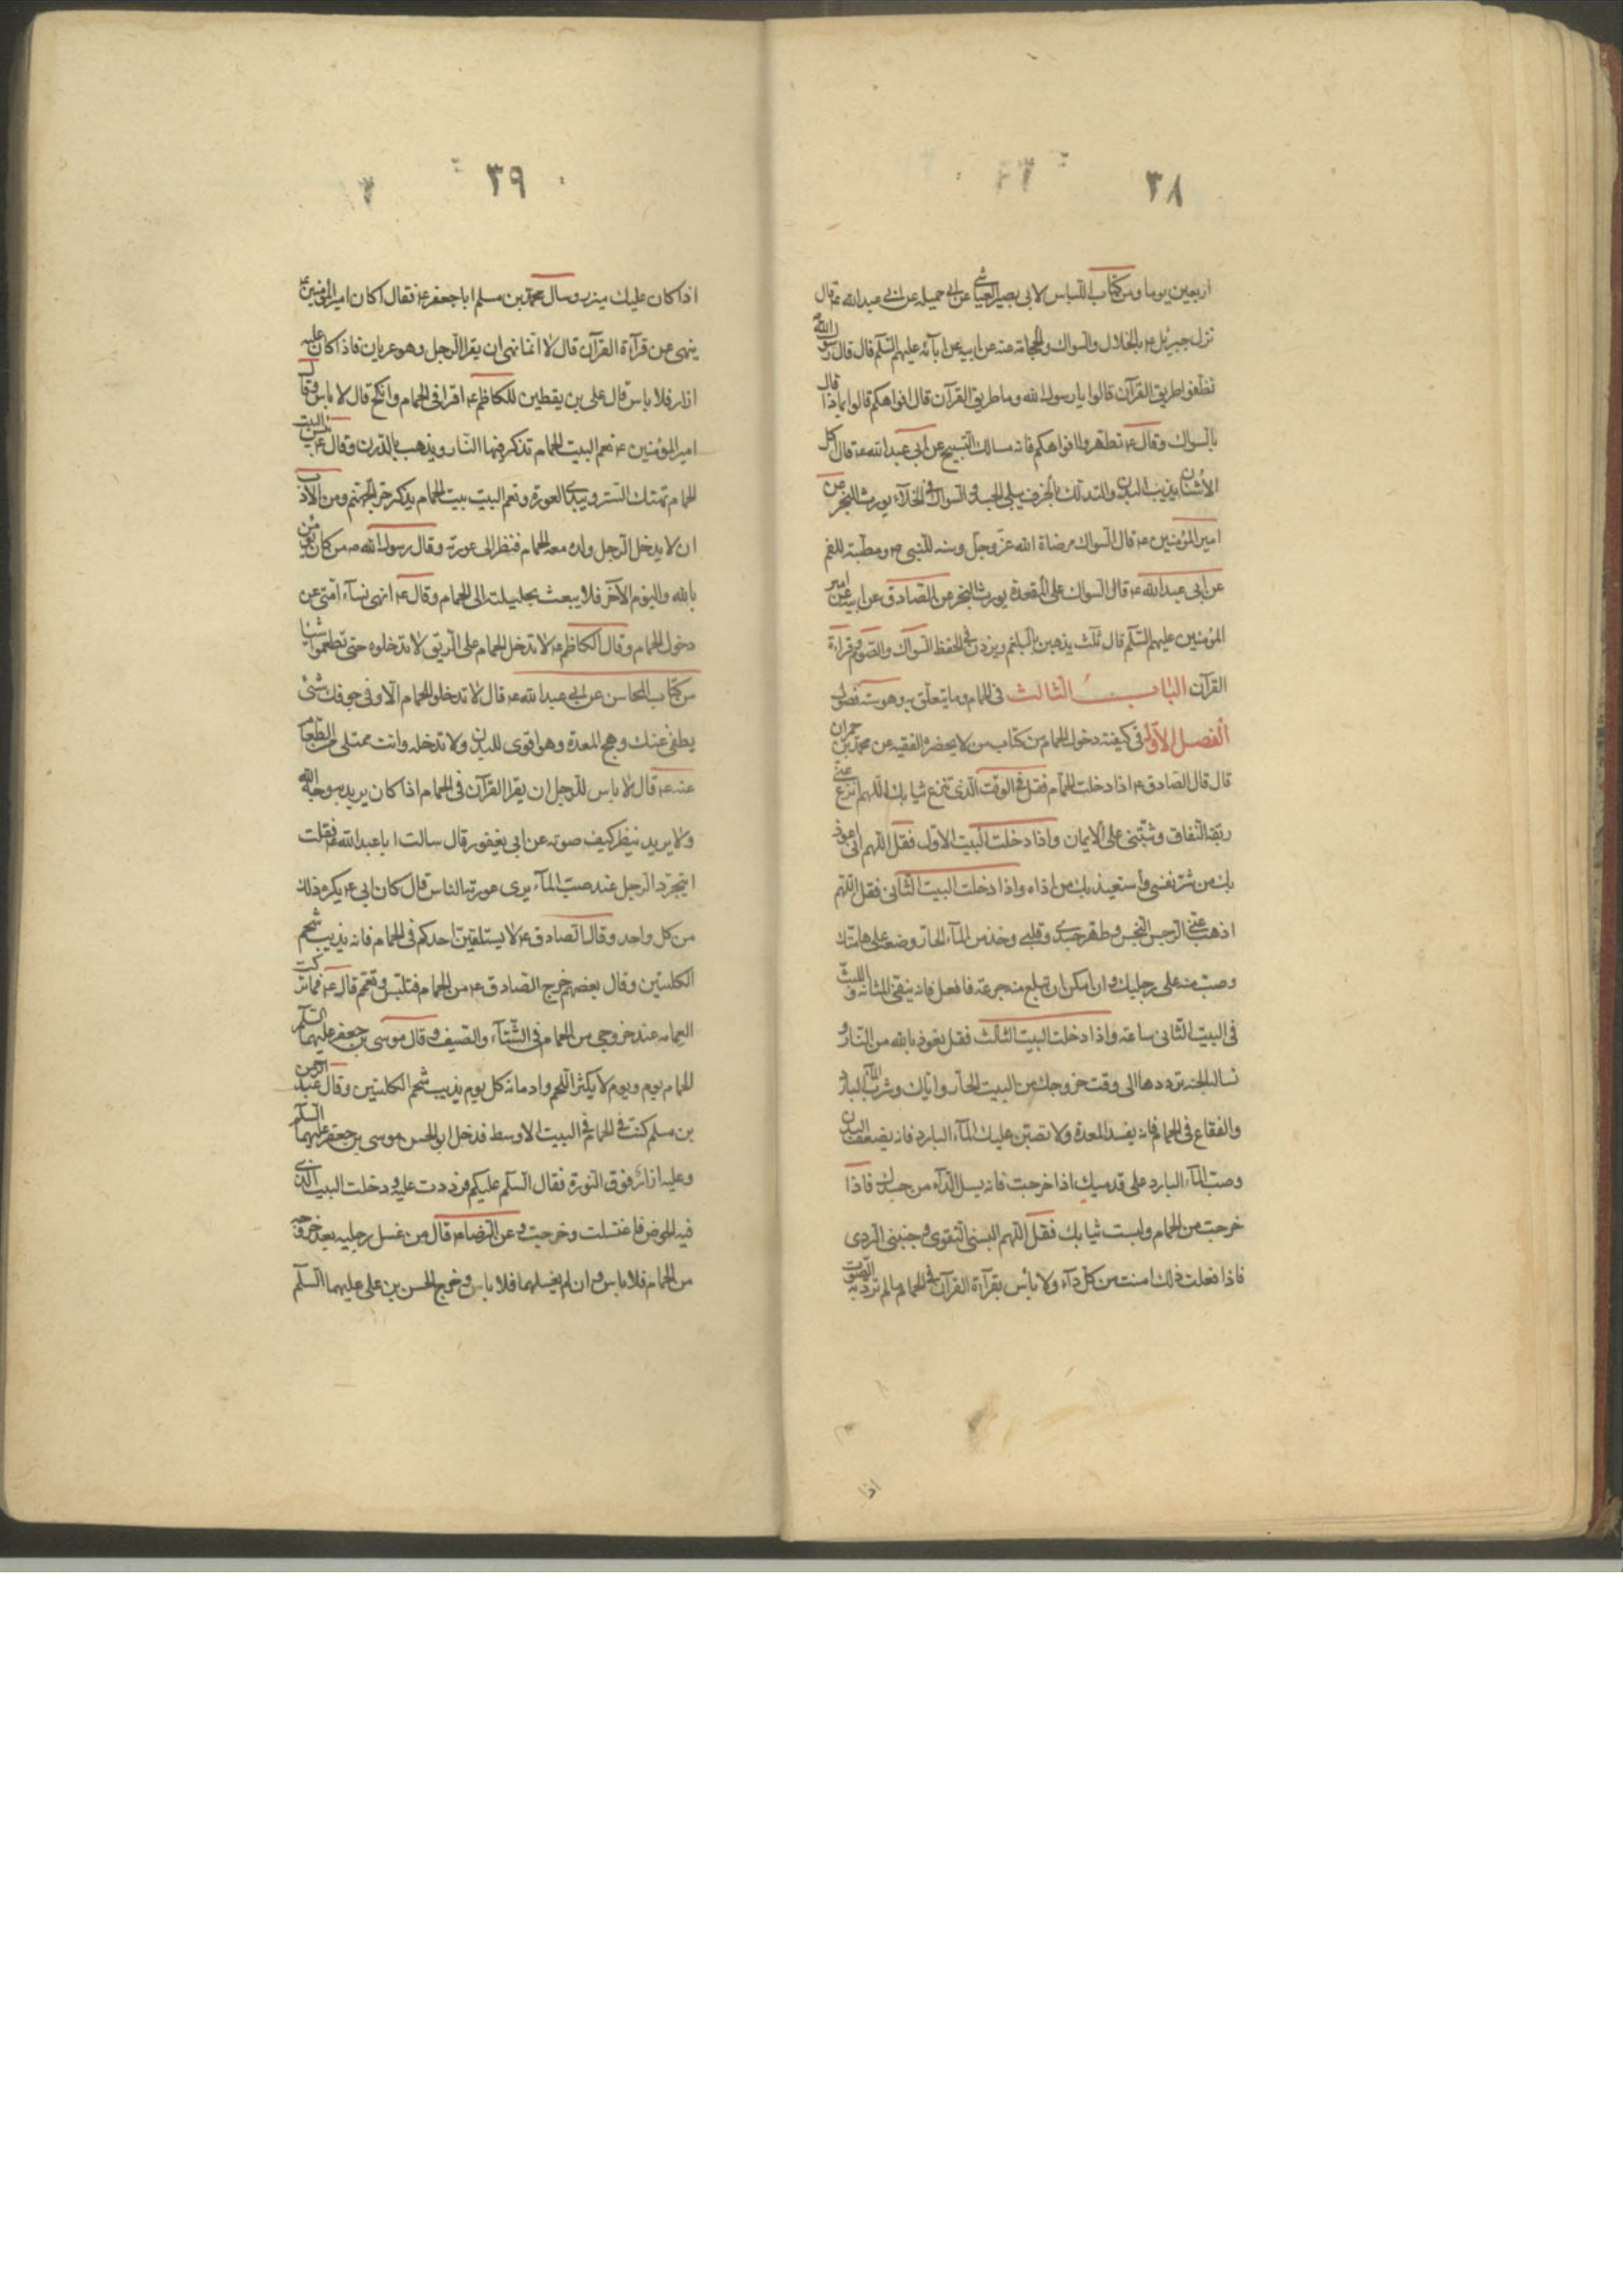 ٣٨
اربعين يوما ومن كتاب اللباس لابى بصير العياشى عن ابى جميله عن ابى عبدالله ع قال
نزل جبرئيل ع بالخلال والسواك والحجامة عنه عن ابيه عن ابآئه عليهم السّلم قال قال رسول الله ص
نظفوا طريق القرآن قالوا يارسول الله وما طريق القرآن قال افواهكم قالوا بماذا قال
بالسواك وقال ع تطهروا افواهكم فانه مسالك التسبيح عن ابى عبدالله ع قال اكل
الاشنان يذيب البدن والتدلك بالخزف يبلى الجسد والسواك فى الخلآء يورث البخر عن
امير المؤمنين ع قال السواك مرضاة الله عزّ وجلّ وسنه للنّبى ص ومطيبة للفم
عن ابى عبدالله ع قال السواك على المقعدة يورث البخر عن الصّادق عن ابيه عن امير
المؤمنين عليهم السّلم قال ثلث يذهبن بالبلغم ويزدن فى الحفظ السّواك والصّوم وقراءة
القرآن الباب الثالث فى الحمام وما يتعلّق به وهو ستة فصول
الفصل الاوّل فى كيفية دخول الحمام من كتاب من لا يحضره الفقيه عن محمّد بن حمران
قال قال الصّادق ع اذا دخلت الحمّام فقل فى الوقت الّذى تنزع ثيابك اللّهم انزع عنّى
ربقة النّفاق وثبّتنى على الايمان واذا دخلت البيت الاوّل فقل اللّهم انى اعوذ
بك من شرّ نفسى واستعيذ بك من اذاه واذا دخلت البيت الثّانى فقل اللّهم
اذهب عنّى الرجس النّجس وطهر جسدى وقلبى وخذ من المآء الحارّ وضعه على هامتك
وصبّ منه على رجليك وان امكن ان تبلع منه جرعة فافعل فانه ينقى المثانة والبث
فى البيت الثّانى ساعة واذا دخلت البيت الثالث فقل نعوذ بالله من النّار و
نساله الجنة ترددها الى وقت خروجك من البيت الحارّ وايّاك وشرب المآء البارد
والفقاع فى الحمام فانه يفسد المعدة ولا تصبّن عليك المآء البارد فانه يضعف البدن
وصبّ المآء البارد على قدميك اذا خرجت فانه يسل الدّآء من جسدك فاذا
خرجت من الحمام ولبست ثيابك فقل اللّهم البسنى التّقوى وجنبنى الرّدى
فاذا فعلت ذلك امنت من كلّ دآء ولا باس بقرآءة القرآن فى الحمام ما لم ترد به الصّوت
اذا
٣٩
اذا كان عليك ميزر وسال محمّد بن مسلم اباجعفر ع فقال اكان امير المؤمنين ع
ينهى عن قرآءة القرآن قال لا انّما نهى ان يقرا الرّجل وهو عريان فاذا كان عليه
ازار فلا باس قال على بن يقطين للكاظم ع اقرا فى الحمام وانكح قال لا باس وقال
امير المؤمنين ع نعم البيت الحمام تذكر فيها النّار ويذهب بالدّرن وقال ع بئس البيت
الحمام تهتك السّتر ويبدى العورة ونعم البيت بيت الحمام يذكر حرّ جهنّم ومن الآداب
ان لا يدخل الرّجل ولده معه الحمام فنظر الى عورته وقال رسول الله ص من كان يؤمن
بالله واليوم الآخر فلا يبعث بحليلته الى الحمام وقال ع انهى نسآء امّتى عن
دخول الحمام وقال الكاظم ع لا تدخل الحمام على الرّيق لا تدخلوه حتى تطعموا شيئا
من كتاب المحاسن عن ابى عبدالله ع قال لا تدخلوا الحمام الّا وفى جوفك شئ
يطفى عنك وهج المعدة وهو اقوى للبدن ولا تدخله وانت ممتلى من الطّعام
عنه ع قال لا باس للرّجل ان يقرا القرآن فى الحمام اذا كان يريد به وجه الله
ولا يريد ينظر كيف صوته عن ابى يعفور قال سالت ابا عبدالله ع فقلت
ايتجرّد الرّجل عند صبّ المآء يرى عورته الناس قال كان ابى ع يكره ذلك
من كل واحد وقال الصّادق ع لا يستلقينّ احدكم فى الحمام فانه يذيب شحم
الكليتين وقال بعضهم خرج الصّادق ع من الحمام فتلبّس وتعمّم قال ع فما تركت
العمامه عند خروجى من الحمام فى الشّتآء والصّيف وقال موسى بن جعفر عليهما السّلم
الحمام يوم ويوم لا يكثر اللّحم وادمانه كل يوم يذيب شحم الكليتين وقال عبد الرّحمن
بن مسلم كنت فى الحمام فى البيت الاوسط فدخل ابو الحسن موسى بن جعفر عليهما السّلم
وعليه ازار فوق النّورة فقال السّلم عليكم فرددت عليه ودخلت البيت الّذى
فيه الحوض فاغتسلت وخرجت وعن الرّضا ع قال من غسل رجليه بعد خروجه
من الحمام فلا باس وان لم يغسلهما فلا باس وخرج الحسن بن على عليهما السّلم